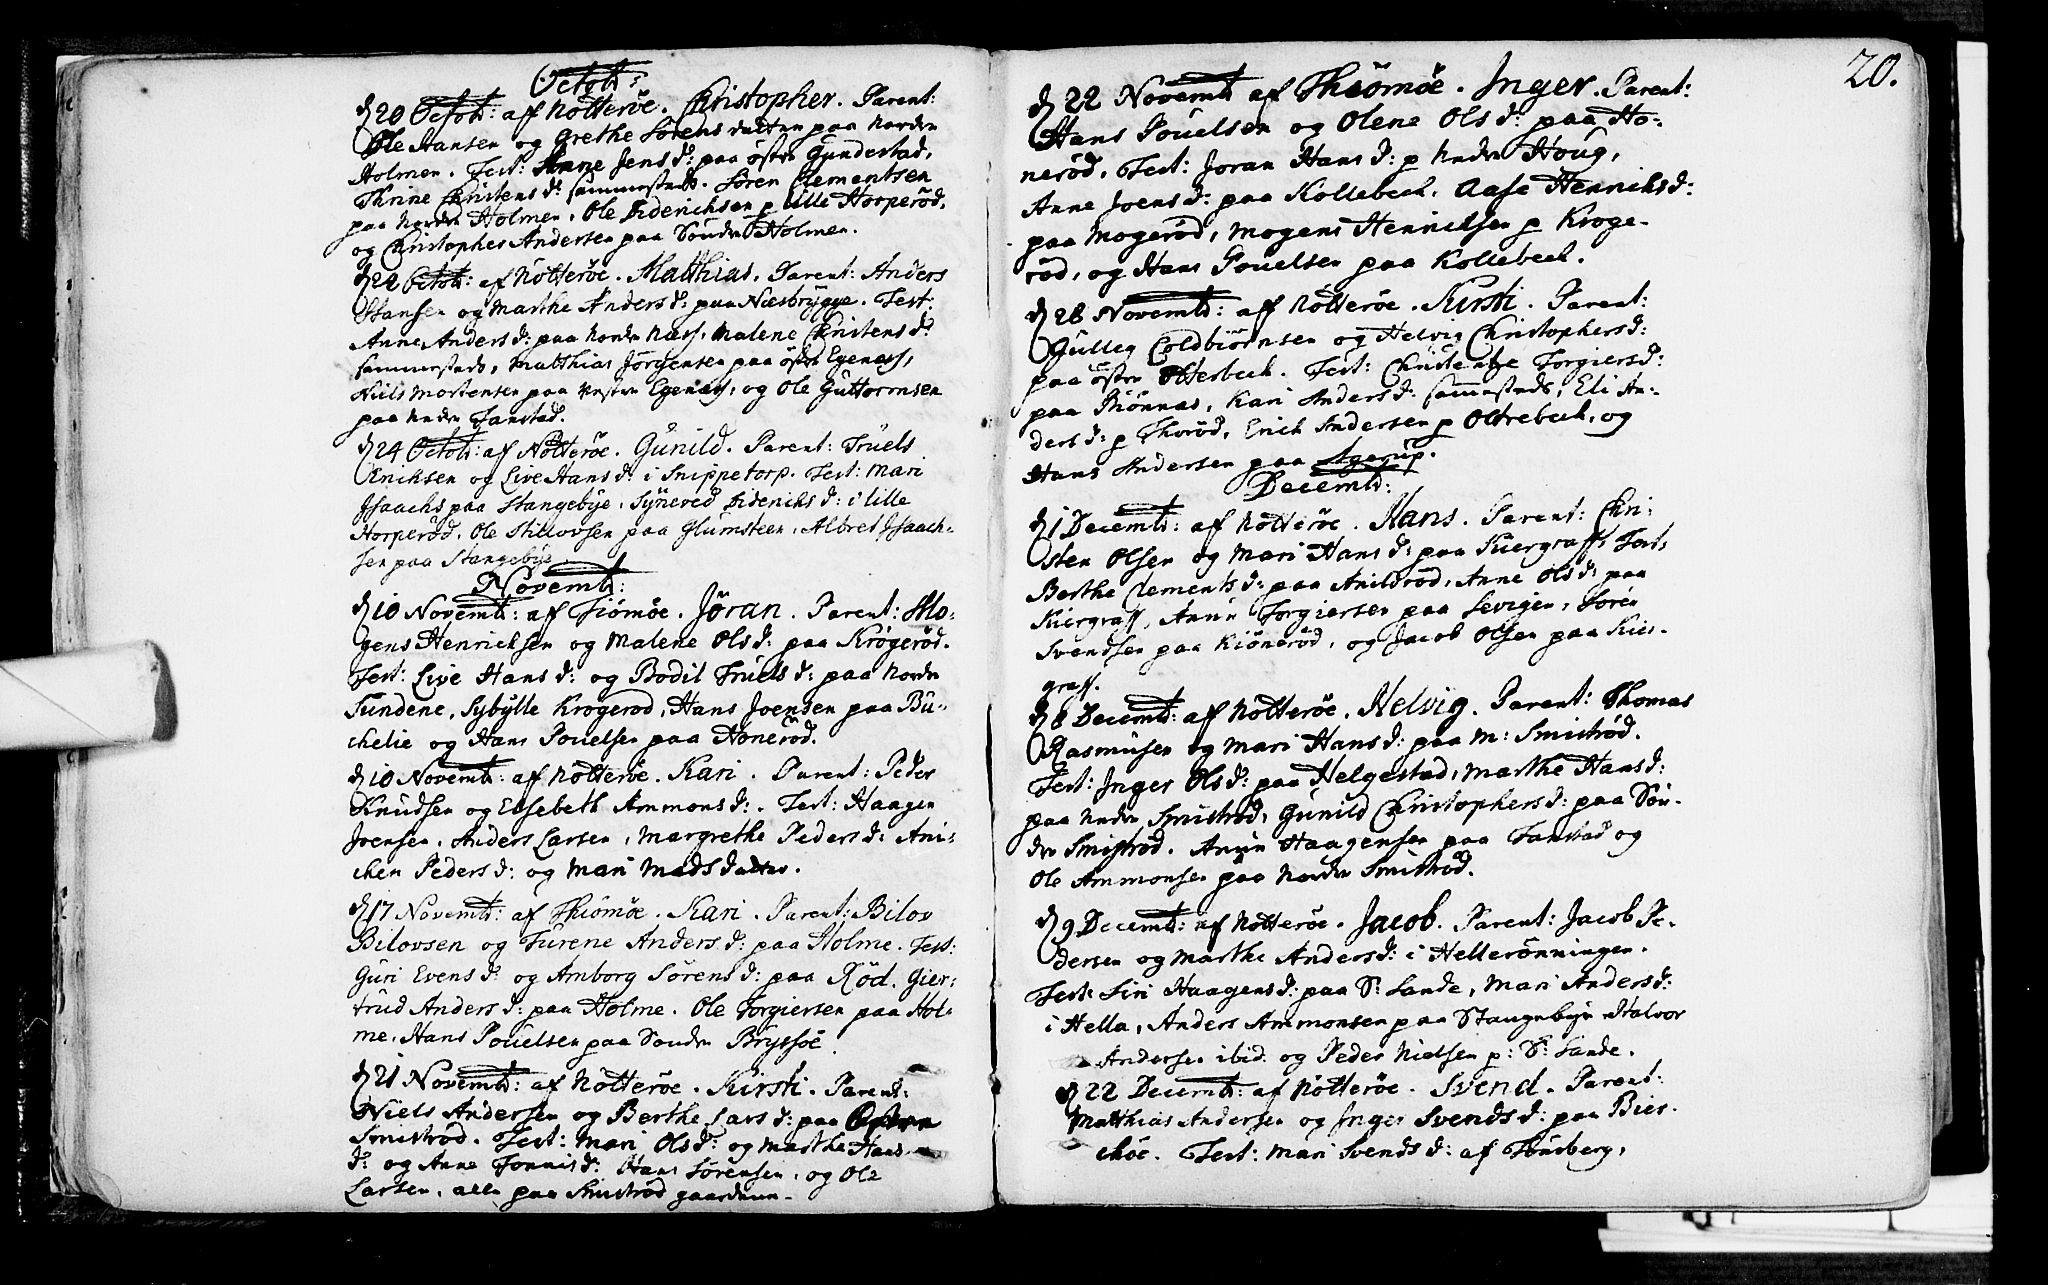 Octob:
d 20 Octob: af Nötteröe. Christopher. Parent:
Ole Hansen og Grethe Sörens datter paa Nordre
Holmen. Test: Anne Jens d: paa östre Gundestad,
Thrine Christens d: sammesteds. Sören Clementsen
paa Nordre Holmen, Ole Diderichsen p lille Horperöd,
og Christopher Andersen paa Söndre Holmen.
d 22 Octob: af Nötteröe. Matthias. Parent: Anders
Hansen og Marthe Anders d: paa Næsbrygge. Test:
Anne Anders d: paa Nordre Næss, Malene Christens d:
sammesteds, Matthias Jörgensen paa östre Egenæss,
Niels Mortensen paa vestre Egenæss, og Ole Guttormsen
paa nedre Fanstad.
d 24 Octob: af Nötteröe. Gunild. Parent: Truels
Erichsen og Live Hans d: i Snippetorp. Test: Mari
Jsaachs paa Stangebye, Syneved Diderichs d: i lille
Horperöd. Ole Stillovsen paa Glumsteen, Albret Jsaach-
sen paa Stangebye.
Novemb:
d 10 Novemb: af Tiömöe. Jöran. Parent: Mo-
gens Henrichsen og Malene Ols d: paa Krögeröd.
Test: Live Hans d: og Bodil Truels d: paa Nordre
Sundene, Sybylle Krogerod, Hans Joensen paa Bu-
chelie og Hans Pouelsen paa Honeröd.
d 10 Novemb: af Nötteröe. Kari. Parent: Peder
Knudsen og Elsebeth Ammons d:. Test: Haagen
Joensen, Anders Larsen, Margrethe Peders d: Ani-
chen Peders d: og Mari Mads datter.
d 17 Novemb: af Thiömöe. Kari. Parent: Bilov
Bilovsen og Turene Anders d: paa Holme. Test:
Guri Evens d: og Amborg Sörens d: paa Röd. Gier-
trud Anders d: paa Holme. Ole Torgiersen paa Hol-
me, Hans Pouelsen paa Söndre Bryssöe
d 21 Novemb: af Nötteröe. Kirsti. Parent:
Niels Andersen og Berthe Lars d: paa
Smiströd. Test: Mari Ols d: og Marthe Hans
d: og Anne Tonnis d: Hans Sörensen, og Ole
Larsen, alle paa Smiströd gaardene.
20.
d 22 Novemb af Thiömöe. Inger. Parent:
Hans Pouelsen og Olene Ols d: paa Ho-
neröd. Test: Joran Hans d: p nedre Houg,
Anne Joens d: paa Kollebech, Aase Henrichs d:
paa Mogeröd, Mogens Henrichsen p Kroge-
röd, og Hans Pouelsen paa Kollebech.
d 28 Novemb: af Nötteröe. Kirsti. Parent:
Gulleg Coldbiörnsen og Helvig Christophers d:
paa östre Otterbech. Test: Christentze Torgiers d:
paa Biönnes, Kari Anders d: sammesteds, Eli An-
ders d: p Thoröd, Erich Andersen p Oltrebech, og
Hans Andersen paa Agerup.
Decemb:
d 1 Decemb: af Nötteröe. Hans. Parent: Chri-
sten Olsen og Mari Hans d: paa Kiergraff. Test:
Berthe Clements d: paa Anildröd, Anne Ols d: paa
Kiergraff, Anun Torgiersen paa Levigen, Sören
Svendsen paa Kiöneröd, og Jacob Olsen paa Kier-
graff.
d 8 Decemb: af Nötteröe. Helvig. Parent: Thomas
Rasmusen og Mari Hans d: paa M: Smiströd.
Test: Inger Ols d: paa Helgestad, Marthe Hans d:
paa nedre Smiströd, Gunild Christophers d: paa Sön-
dre Smiströd. Anun Haagensen paa Fanstad og
Ole Ammonsen paa Nordre Smiströd.
d 9 Decemb: af Nötteröe. Jacob. Parent: Jacob Pe-
dersen og Marthe Anders d: i Hellerönningen.
Test: Siri Haagens d: paa S: Lande, Mari Anders d:
i Hella, Anders Ammonsen paa Stangebye Halvor
Andersen ibid. og Peder Nielsen p: S: Lande.
d 22 Decemb: af Nötteröe. Svend. Parent:
Matthias Andersen og Inger Svends d: paa Bier-
chöe. Test: Mari Svends d: af Tönsberg,